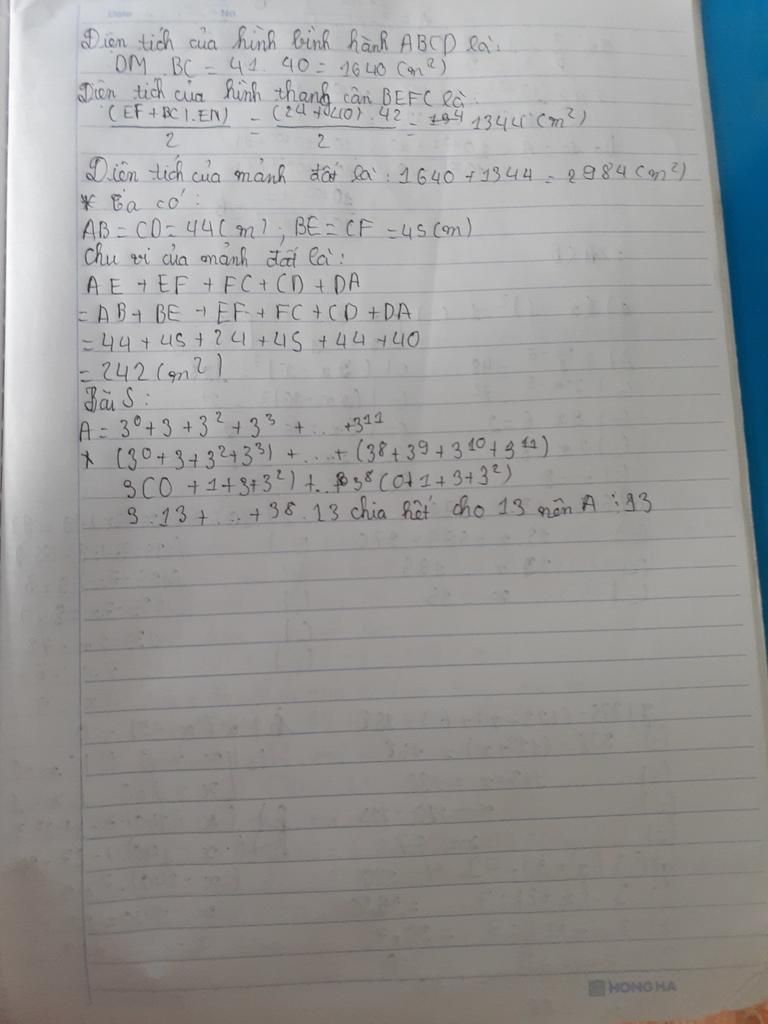 Date No
Diện tích của hình bình hành ABCD là:
DM . BC = 41 . 40 = 1640 (m²)
Diện tích của hình thang cân BEFC là:
(EF + BC).EN) / 2 = (24 + 40) . 42 / 2 = 1344 (m²)
Diện tích của mảnh đất là : 1640 + 1344 = 2984 (m²)
* Ta có :
AB = CD = 44 (m) ; BE = CF = 45 (m)
Chu vi của mảnh đất là :
AE + EF + FC + CD + DA
= AB + BE + EF + FC + CD + DA
= 44 + 45 + 24 + 45 + 44 + 40
= 242 (m²)
Bài 5 :
A = 3⁰ + 3 + 3² + 3³ + ... + 3¹¹
* (3⁰ + 3 + 3² + 3³) + ... + (3⁸ + 3⁹ + 3¹⁰ + 3¹¹)
3(0 + 1 + 3 + 3²) + ... 3⁸(0 + 1 + 3 + 3²)
3 . 13 + ... + 38 . 13 chia hết cho 13 nên A ⋮ 13
HONG HA